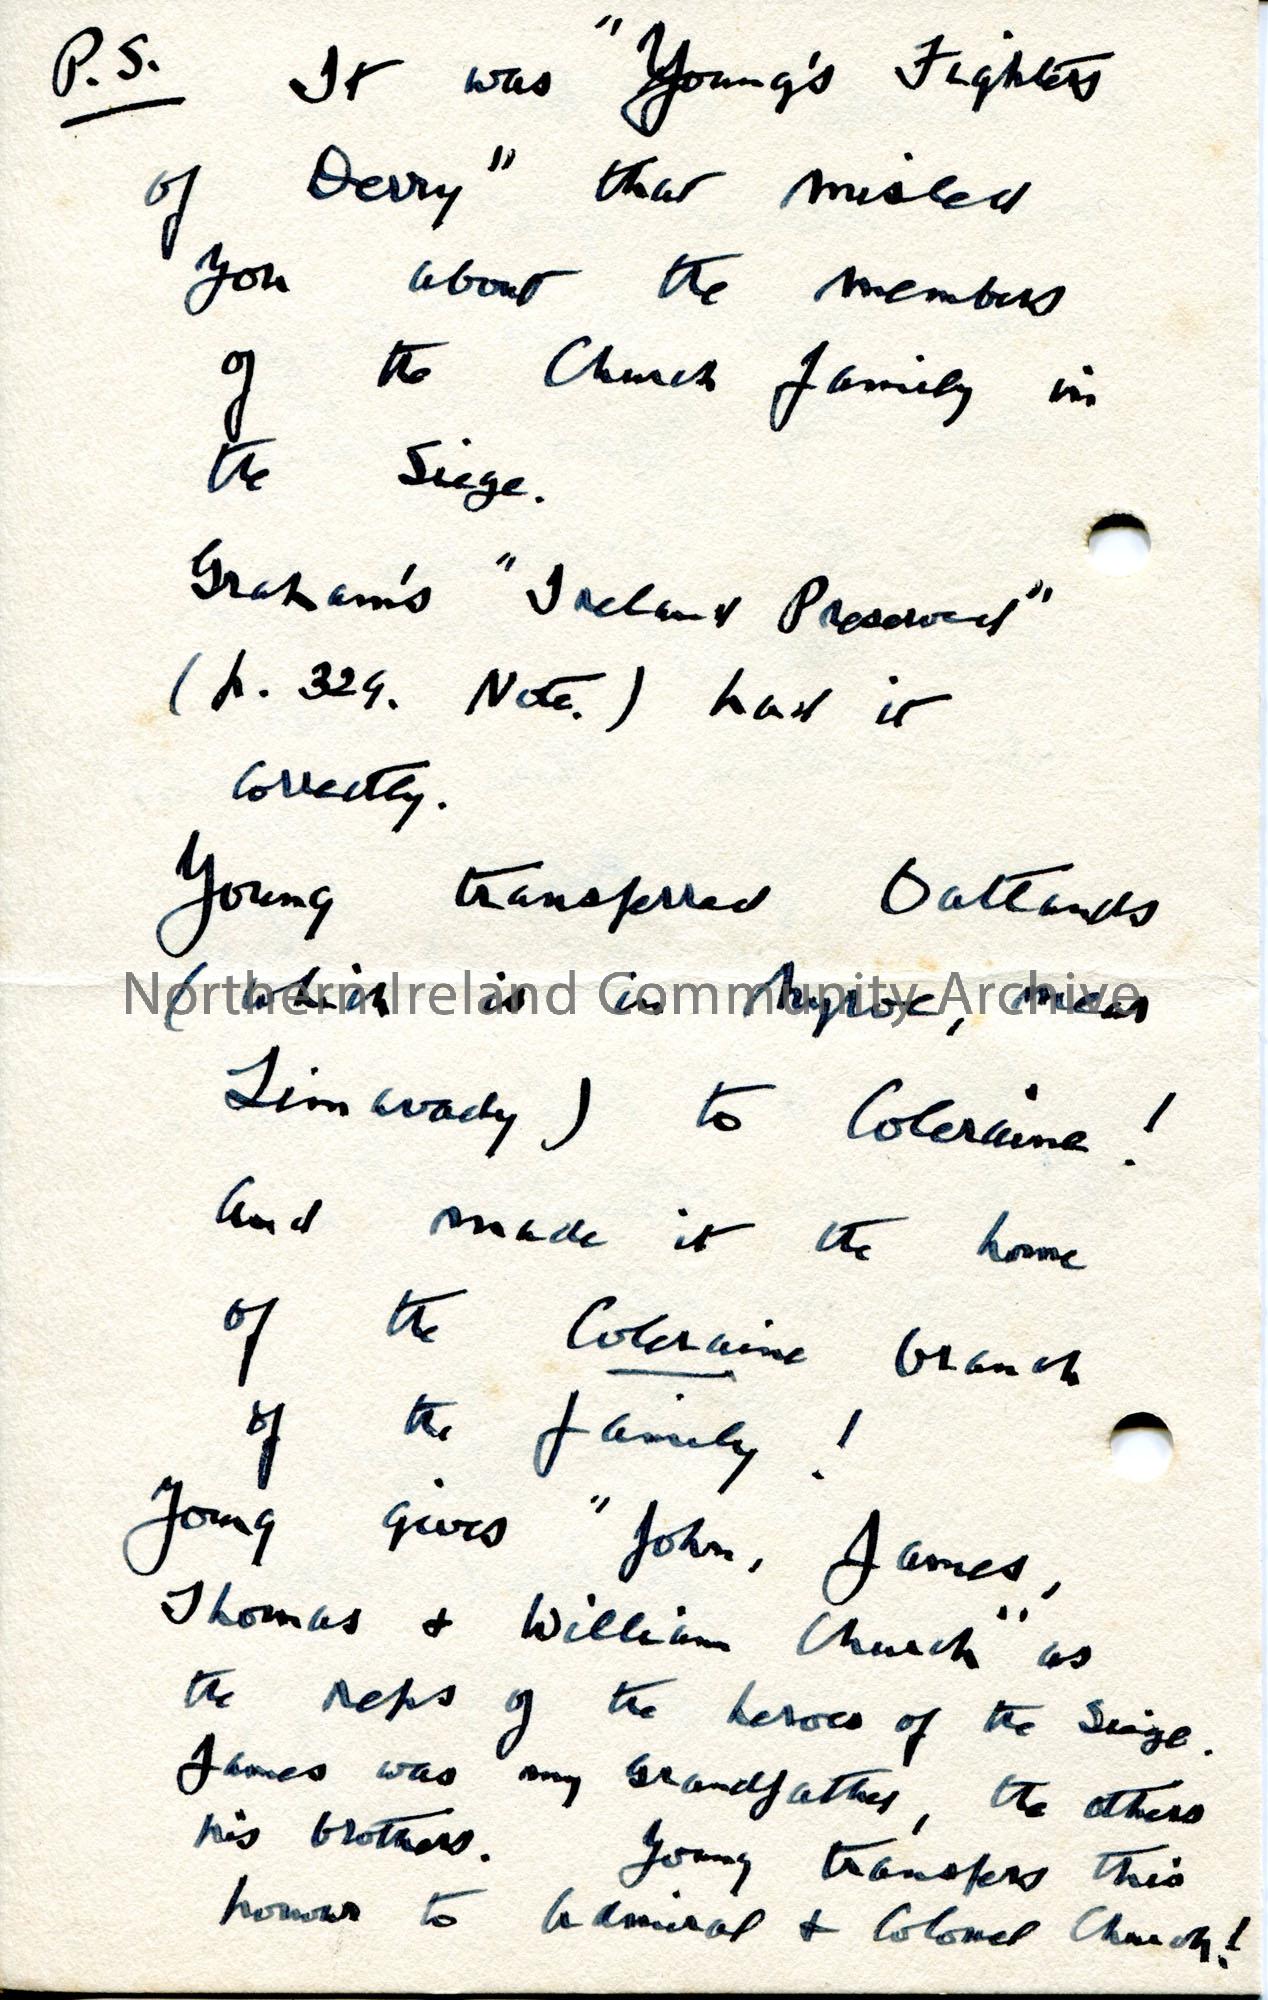 P.S. It was "Young's Fighters
of Derry" that misled
you about the members
of the Church family in
the Siege.
Graham's "Ireland Preserved"
(p. 329. Note.) had it
correctly.
Young transferred Oatlands
(which is in Myroe, near
Northern Ireland Community Archive
Limavady) to Coleraine!
and made it the home
of the Coleraine branch
of the family!
Young gives "John, James,
Thomas & William Church" as
the reps of the heroes of the Siege.
James was my grandfather, the others
his brothers. Young transfers this
honour to Admiral & Colonel Church!